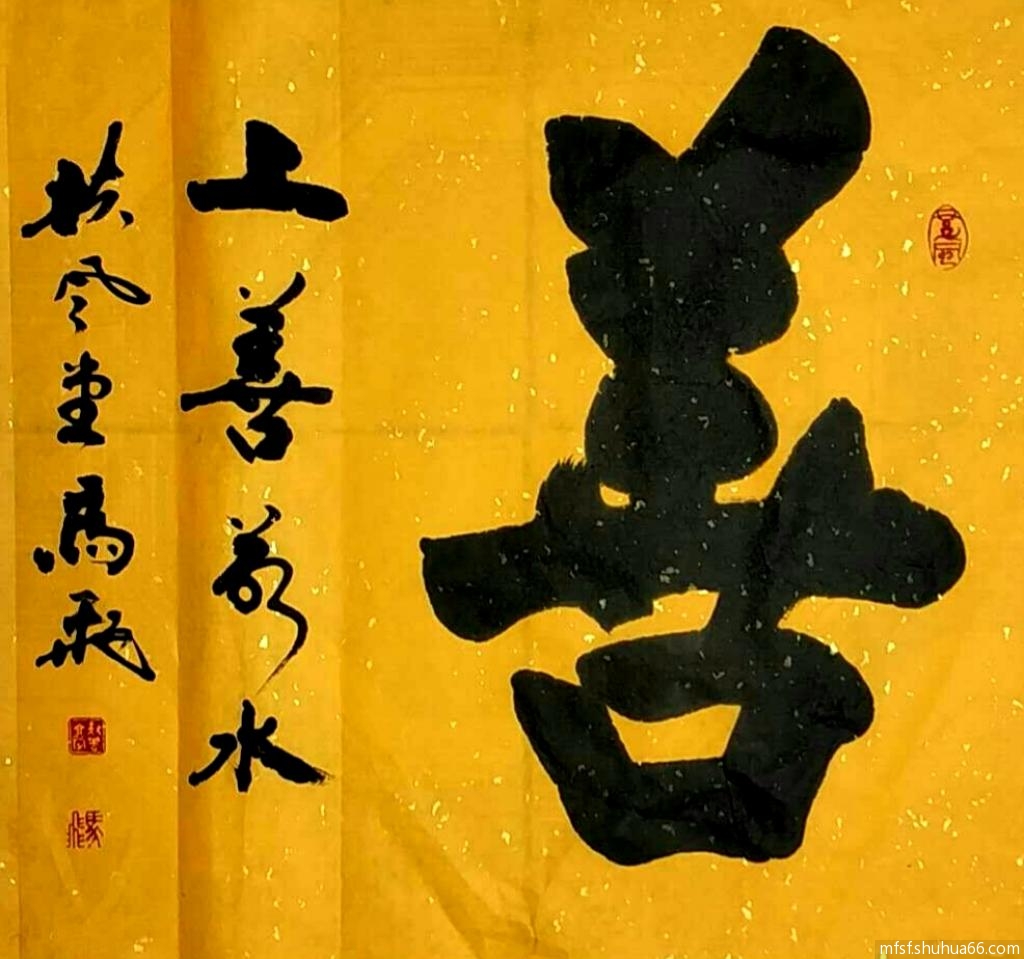 善
上善若水
扶风堂馬飛
mfsf.shuhua66.com